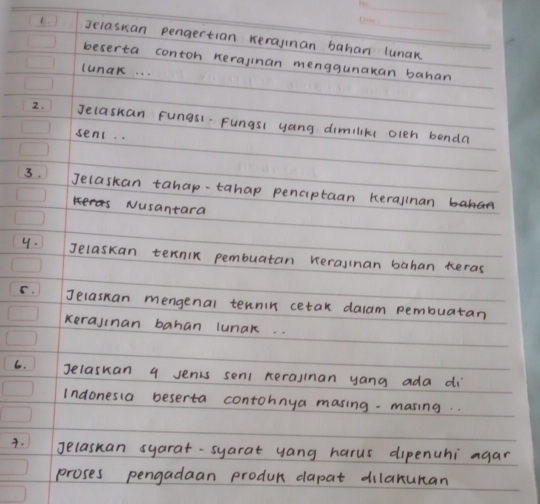 1. Jelaskan pengertian kerajinan bahan lunak
beserta contoh kerajinan menggunakan bahan
lunak ...
2. Jelaskan fungsi-fungsi yang dimiliki oleh benda
seni ..
3. Jelaskan tahap-tahap penciptaan kerajinan bahan
keras Nusantara
4. Jelaskan teknik pembuatan kerajinan bahan keras
5. Jelaskan mengenai teknik cetak dalam pembuatan
kerajinan bahan lunak ..
6. Jelaskan 4 jenis seni kerajinan yang ada di
Indonesia beserta contohnya masing-masing ..
7. Jelaskan syarat-syarat yang harus dipenuhi agar
proses pengadaan produk dapat dilakukan